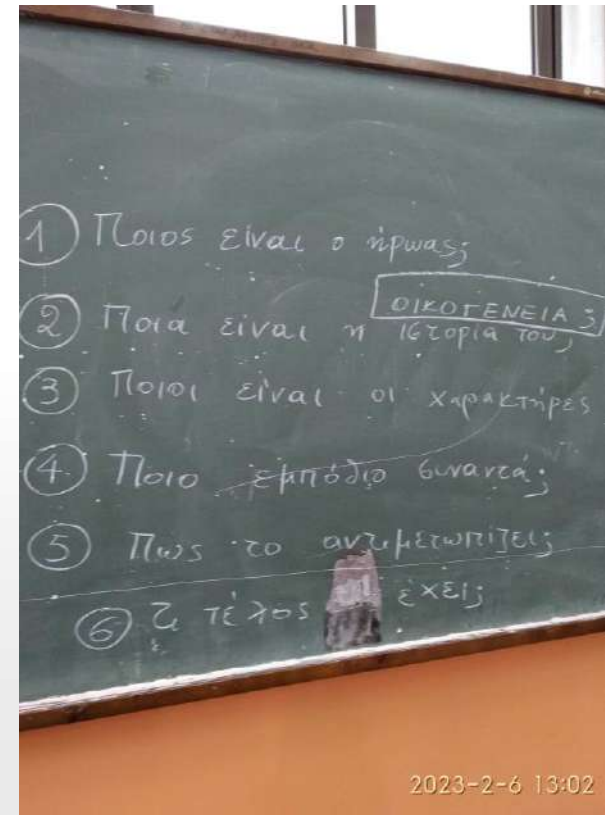 1 Ποιος είναι ο ήρωας;
ΟΙΚΟΓΕΝΕΙΑ;
2 Ποια είναι η ιστορία του;
3 Ποιοι είναι οι χαρακτήρες
4 Ποιο εμπόδιο συναντά;
5 Πως το αντιμετωπίζει;
6 Τι τέλος έχει;
2023-2-6 13:02